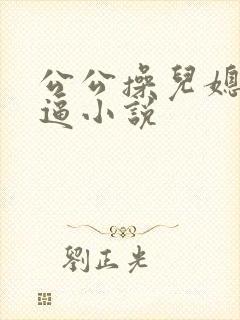 公公操兒媳
逼小說
劉正光